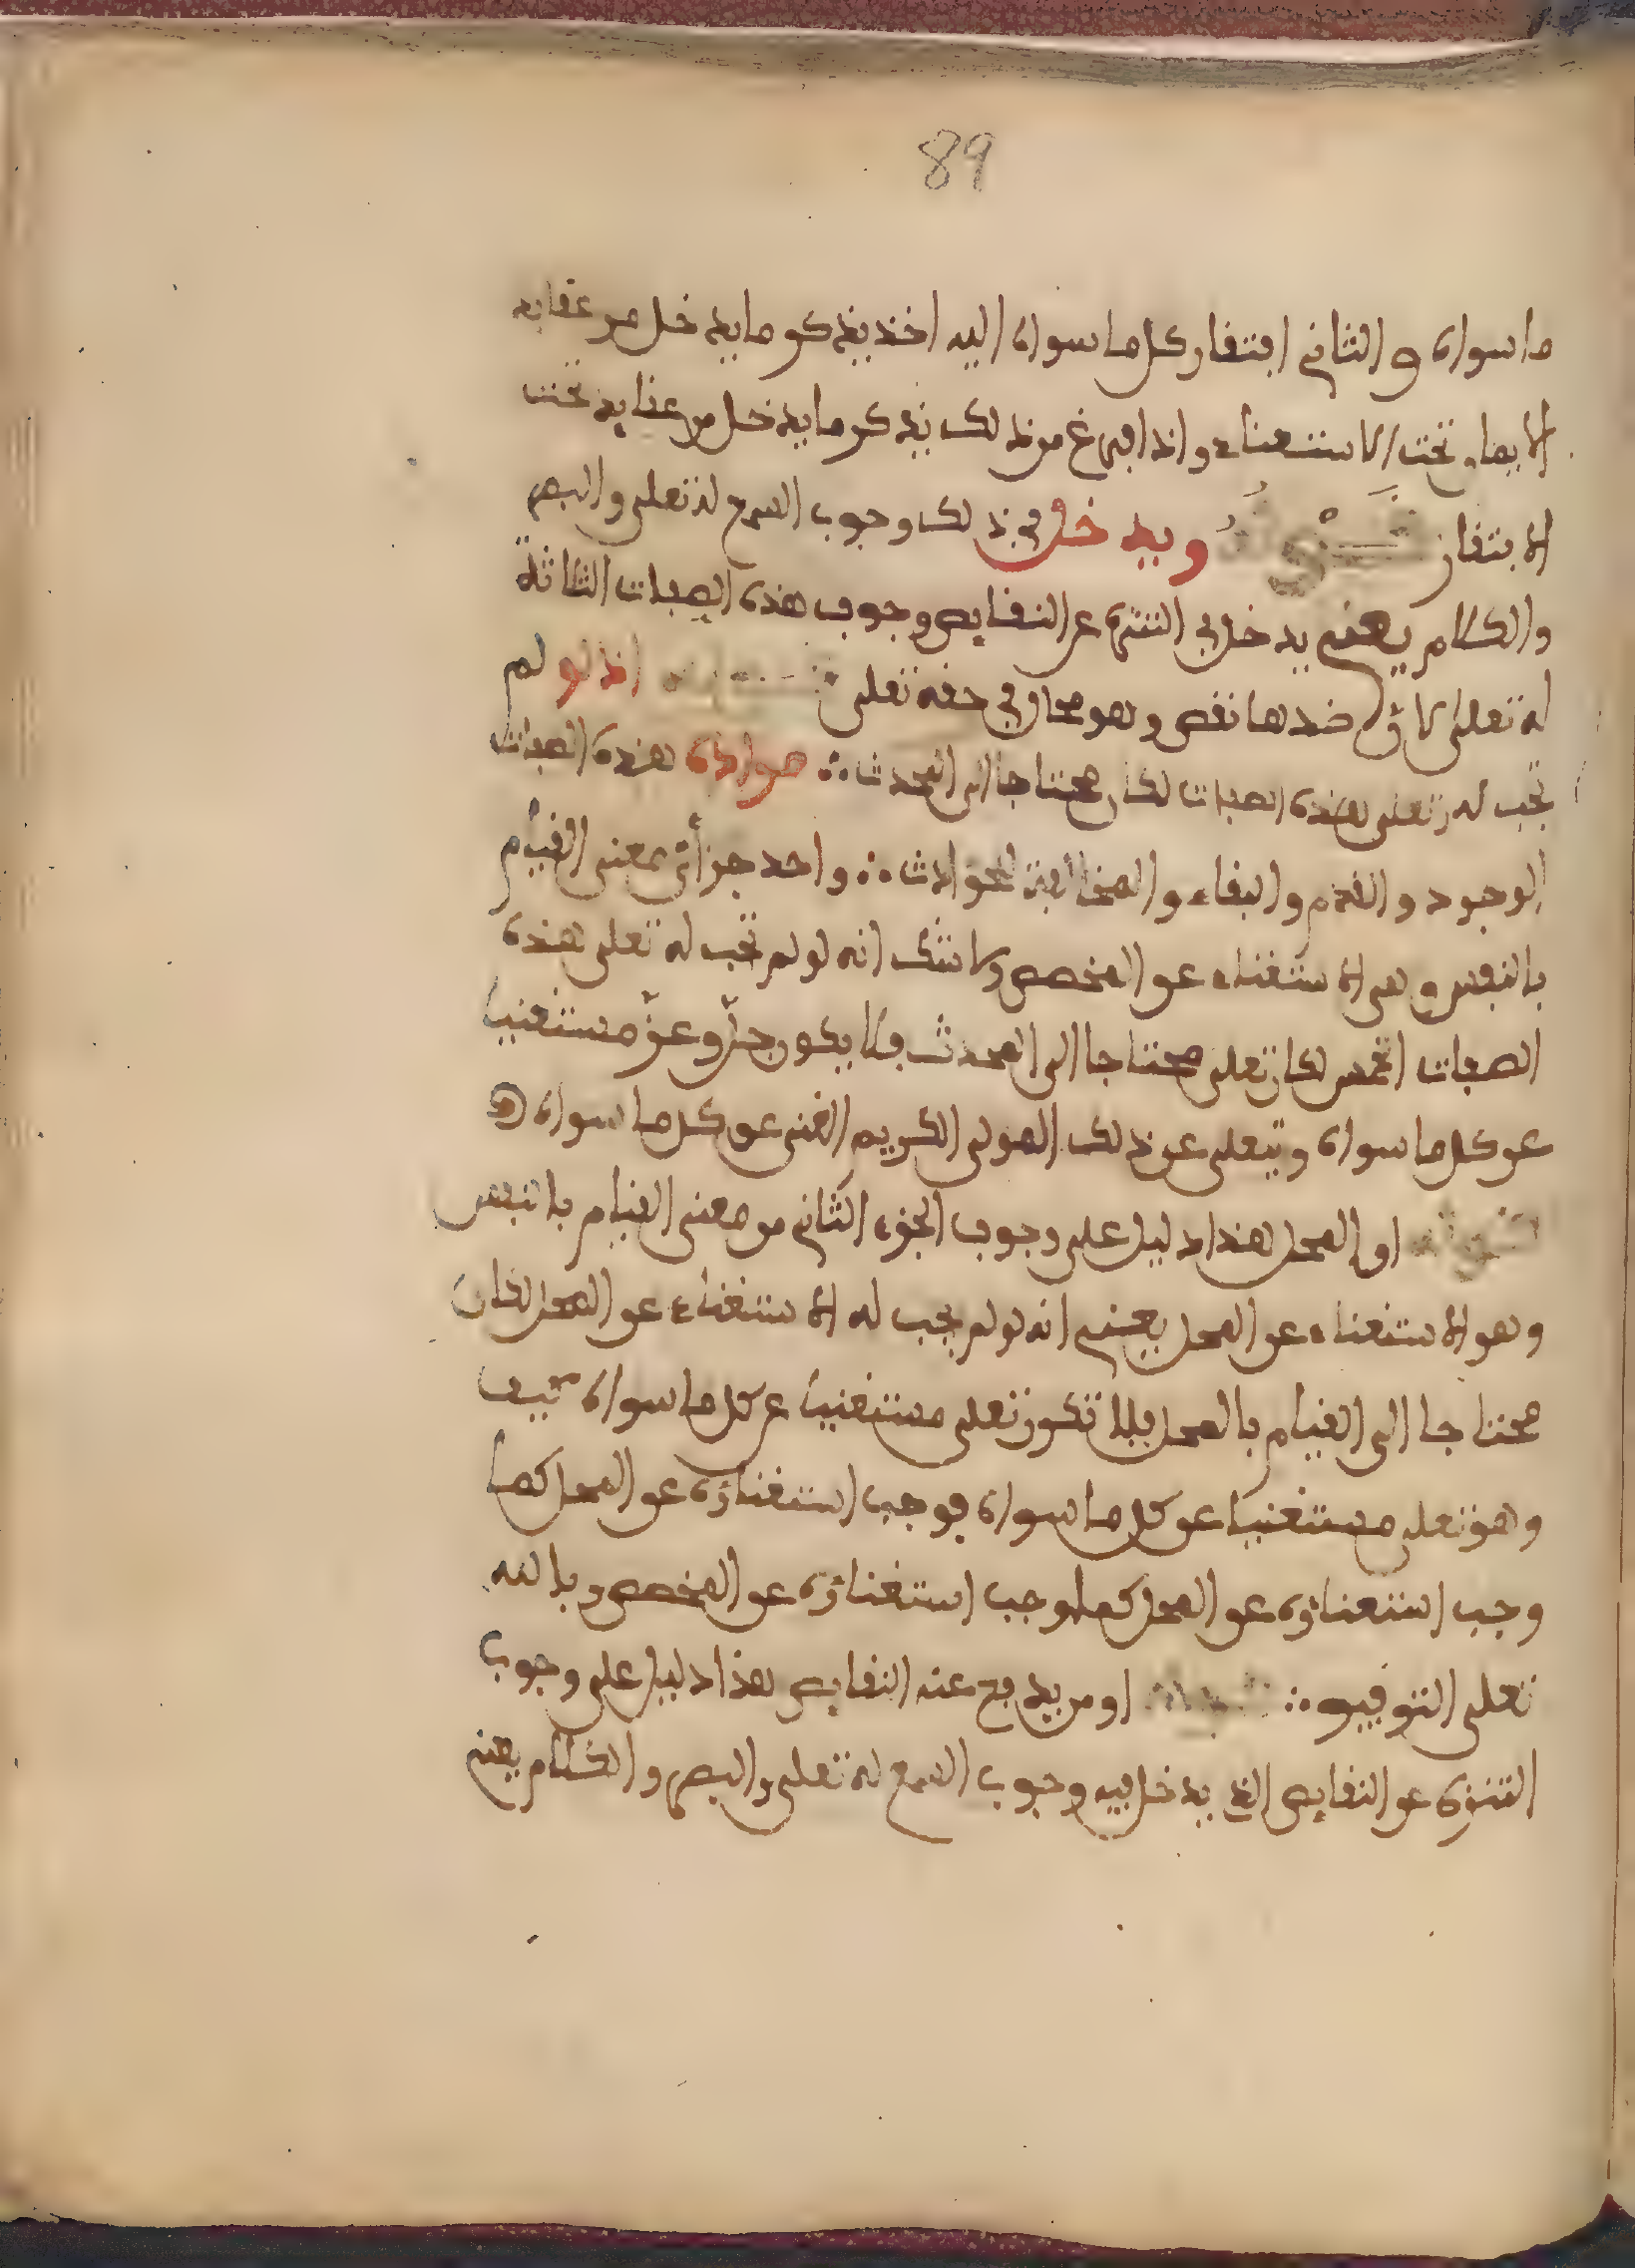 89
ما سواه والثاني افتقار كل ما سواه اليه اخذ يذكر ما يدخل من عقايد
الايمان تحت الاستغناء واذا فرغ من ذلك يذكر ما يدخل من عقايد تحت
الافتقار ويدخل في ذلك وجوب السمع له تعلى والبصر
والكلام يعني يدخل في التنزه عن النقايص وجوب هذه الصفات الثلاثة
له تعلى لان ضدها نقص وهو محال في حقه تعلى اذ لو لم
تجب له تعلى هذه الصفات لكان محتاجا الى المحدث هذه الصفات
الوجود والقدم والبقاء والمخالفة للحوادث واحد جزأي معنى القيام
بالنفس وهي الاستغناء عن المخصص ولا شك انه لو لم تجب له تعلى هذه
الصفات الخمس لكان تعلى محتاجا الى المحدث فلا يكون جل وعز مستغنيا
عن كل ما سواه وتعلى عن ذلك المولى الكريم الغني عن كل ما سواه
او المحل هذا دليل على وجوب الجزء الثاني من معنى القيام بالنفس
وهو الاستغناء عن المحل يعني انه لو لم يجب له الاستغناء عن المحل لكان
محتاجا الى القيام بالمحل فلا تكون تعلى مستغنيا عن كل ما سواه كيف
وهو تعلى مستغنيا عن كل ما سواه فوجب استغناؤه عن المحل كما
وجب استغناؤه عن المحل كما وجب استغناؤه عن المخصص وبالله
تعلى التوفيق او من يدفع عنه النقايص هذا دليل على وجوب
التنزه عن النقايص الذ يدخل فيه وجوب السمع له تعلى والبصر والكلام يعني